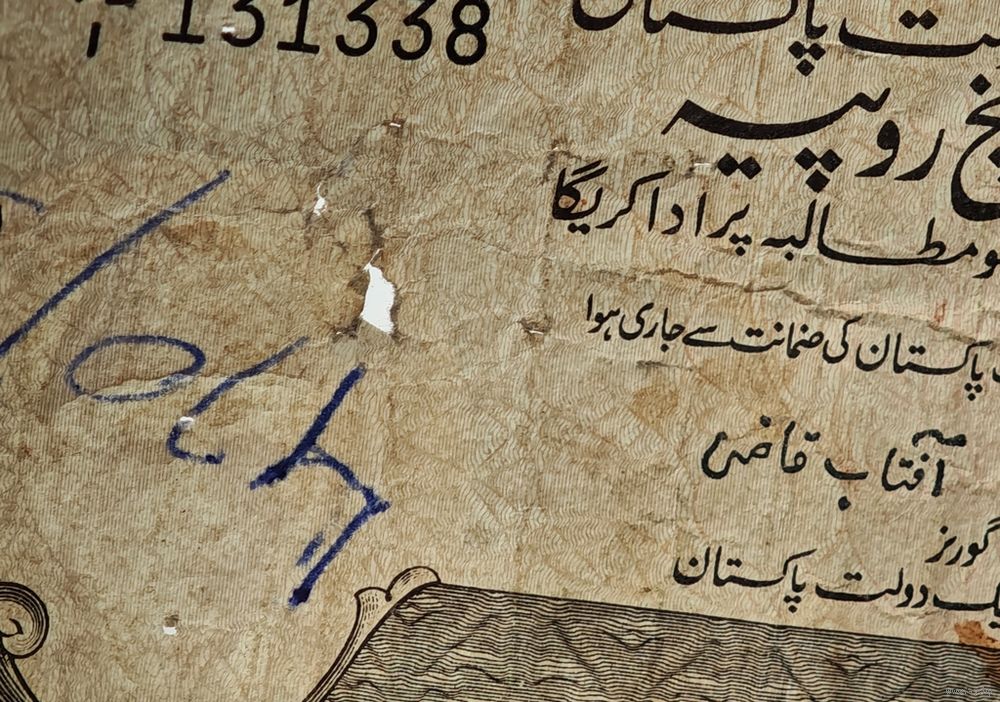 131338
ت پاکستان
نج روپیہ
ومطالبہ پر ادا کریگا
پاکستان کی ضمانت سے جاری ہوا
آفتاب قاضی
گورنر
ک دولت پاکستان